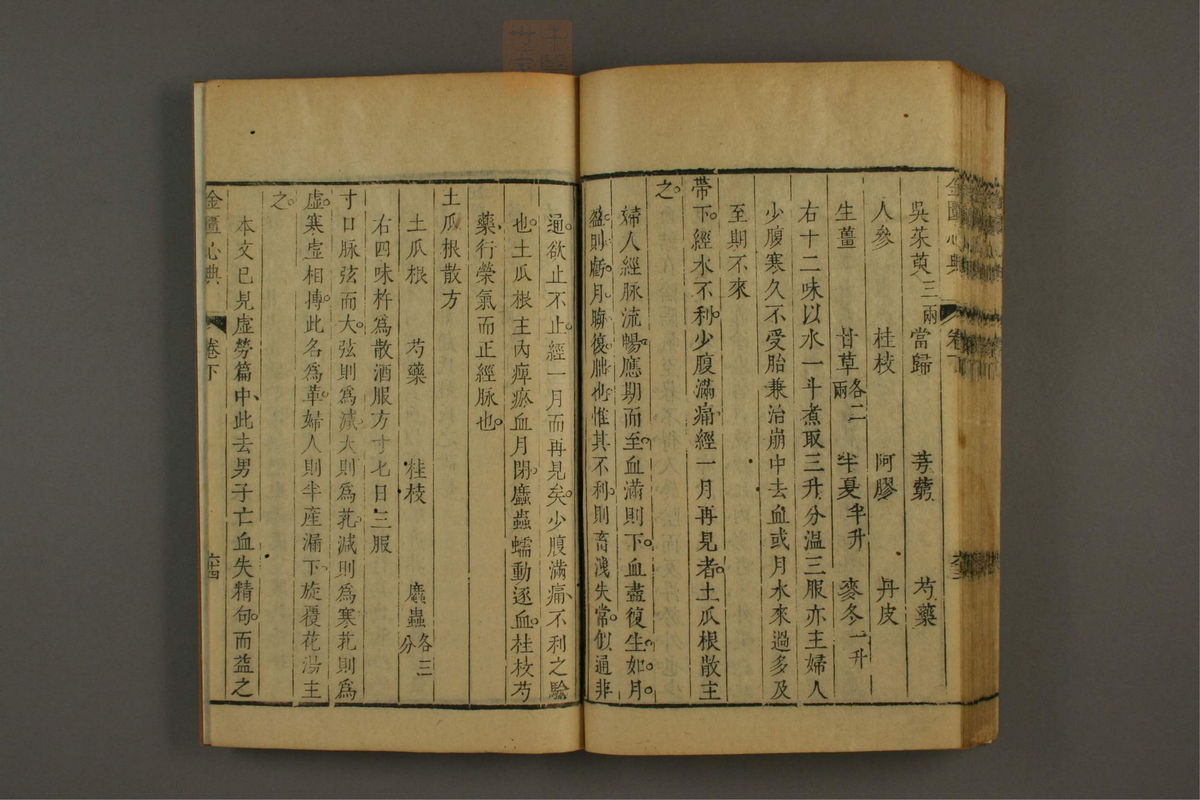 金匱心典 卷下
吳茱萸三兩 當歸 芎藭 芍藥
人參 桂枝 阿膠 丹皮
生薑 甘草各二兩 半夏半升 麥冬一升
右十二味以水一斗煮取三升分溫三服亦主婦人
少腹寒久不受胎兼治崩中去血或月水來過多及
至期不來
帶下。經水不利。少腹滿痛經一月再見者。土瓜根散主
之。
婦人經脉流暢。應期而至。血滿則下。血盡復生。如月
盈則虧。月晦復朏也。惟其不利。則畜洩失常。似通非
通。欲止不止。經一月而再見矣。少腹滿痛、不利之驗
也。土瓜根主內痺瘀血月閉。䗪蟲蠕動逐血。桂枝芍
藥、行榮氣而正經脉也。
土瓜根散方
土瓜根 芍藥 桂枝 䗪蟲各三分
右四味杵為散酒服方寸匕日三服
寸口脉弦而大。弦則為減、大則為芤。減則為寒、芤則為
虛。寒虛相搏。此名為革。婦人則半產漏下、旋覆花湯主
之。
本文已見虛勞篇中、此去男子亡血失精句。而益之
金匱心典 卷下 六十四